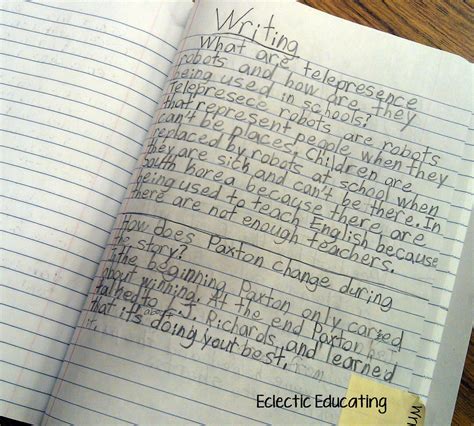 Writing
What are telepresence
robots and how are they
being used in schools?
Telepresece robots are robots
that represent people when they
can't be places. Children are
replaced by robots at school when
they are sick and can't be there. In
South Korea because there are
being used to teach English because
there are not enough teachers.
How does Paxton change during
the story?
In the beginning Paxton only caried
about winning. At the end Paxton
talked to J. Richards, and learned
that it's doing your best,
Eclectic Educating